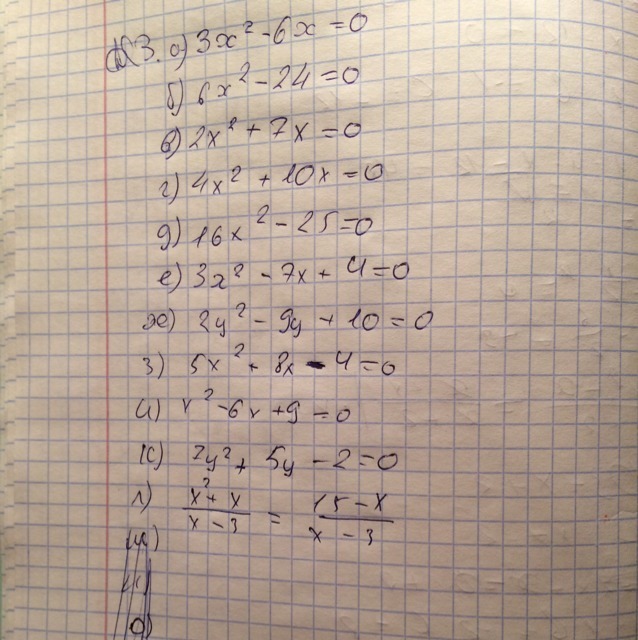 №3. а) 3x² - 6x = 0
б) 6x² - 24 = 0
в) 2x² + 7x = 0
г) 4x² + 10x = 0
д) 16x² - 25 = 0
е) 3x² - 7x + 4 = 0
ж) 2y² - 9y + 10 = 0
з) 5x² + 8x - 4 = 0
и) x² - 6x + 9 = 0
к) 7y² + 5y - 2 = 0
л) (x² + x)/(x - 3) = (15 - x)/(x - 3)